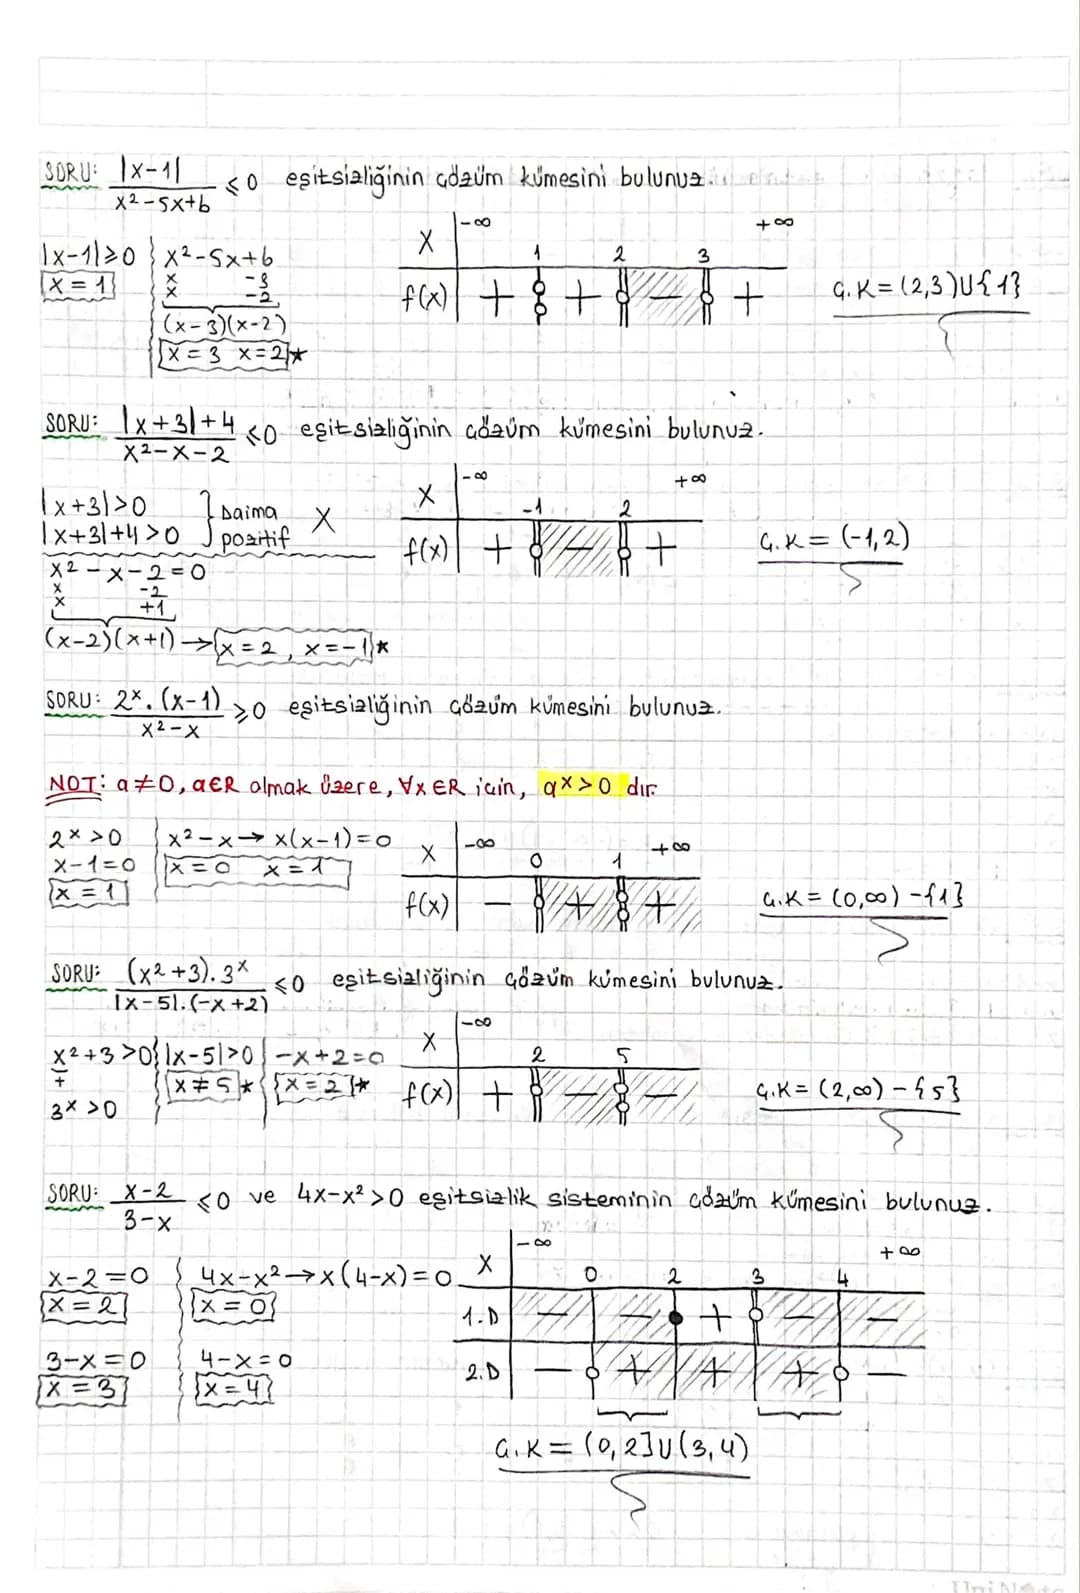 SORU: |x-1| / x²-5x+6 ≤ 0 eşitsizliğinin çözüm kümesini bulunuz.
|x-1|≥0 x²-5x+6
x = 1 x -3
x -2
(x-3)(x-2)
x = 3 x = 2 *
x -∞ 1 2 3 +∞
f(x) + + - +
Ç.K = (2,3)∪{1}
SORU: |x+3|+4 / x²-x-2 ≤0 eşitsizliğinin çözüm kümesini bulunuz.
|x+3|>0
|x+3|+4>0 } Daima pozitif X
x²-x-2=0
x -2
x +1
(x-2)(x+1) → x = 2, x = -1 *
x -∞ -1 2 +∞
f(x) + - +
Ç.K = (-1,2)
SORU: 2ˣ.(x-1) / x²-x ≥0 eşitsizliğinin çözüm kümesini bulunuz.
NOT: a≠0, a∈R olmak üzere, ∀x∈R için, aˣ>0 dır.
2ˣ >0 x²-x → x(x-1)=0
x-1=0 x = 0 x = 1
x = 1
x -∞ 0 1 +∞
f(x) - + +
Ç.K = (0,∞) -{1}
SORU: (x²+3).3ˣ / |x-5|.(-x+2) ≤0 eşitsizliğinin çözüm kümesini bulunuz.
x²+3 >0 |x-5|>0 -x+2=0
+ x ≠ 5 * x = 2 *
3ˣ >0
x -∞ 2 5
f(x) + - -
Ç.K = (2,∞) - {5}
SORU: x-2 / 3-x ≤0 ve 4x-x² >0 eşitsizlik sisteminin çözüm kümesini bulunuz.
x-2=0 4x-x² → x(4-x)=0
x = 2 x = 0
3-x=0 4-x=0
x = 3 x = 4
x -∞ 0 2 3 4 +∞
1.D - - + - -
2.D - + + + -
Ç.K = (0,2]∪(3,4)